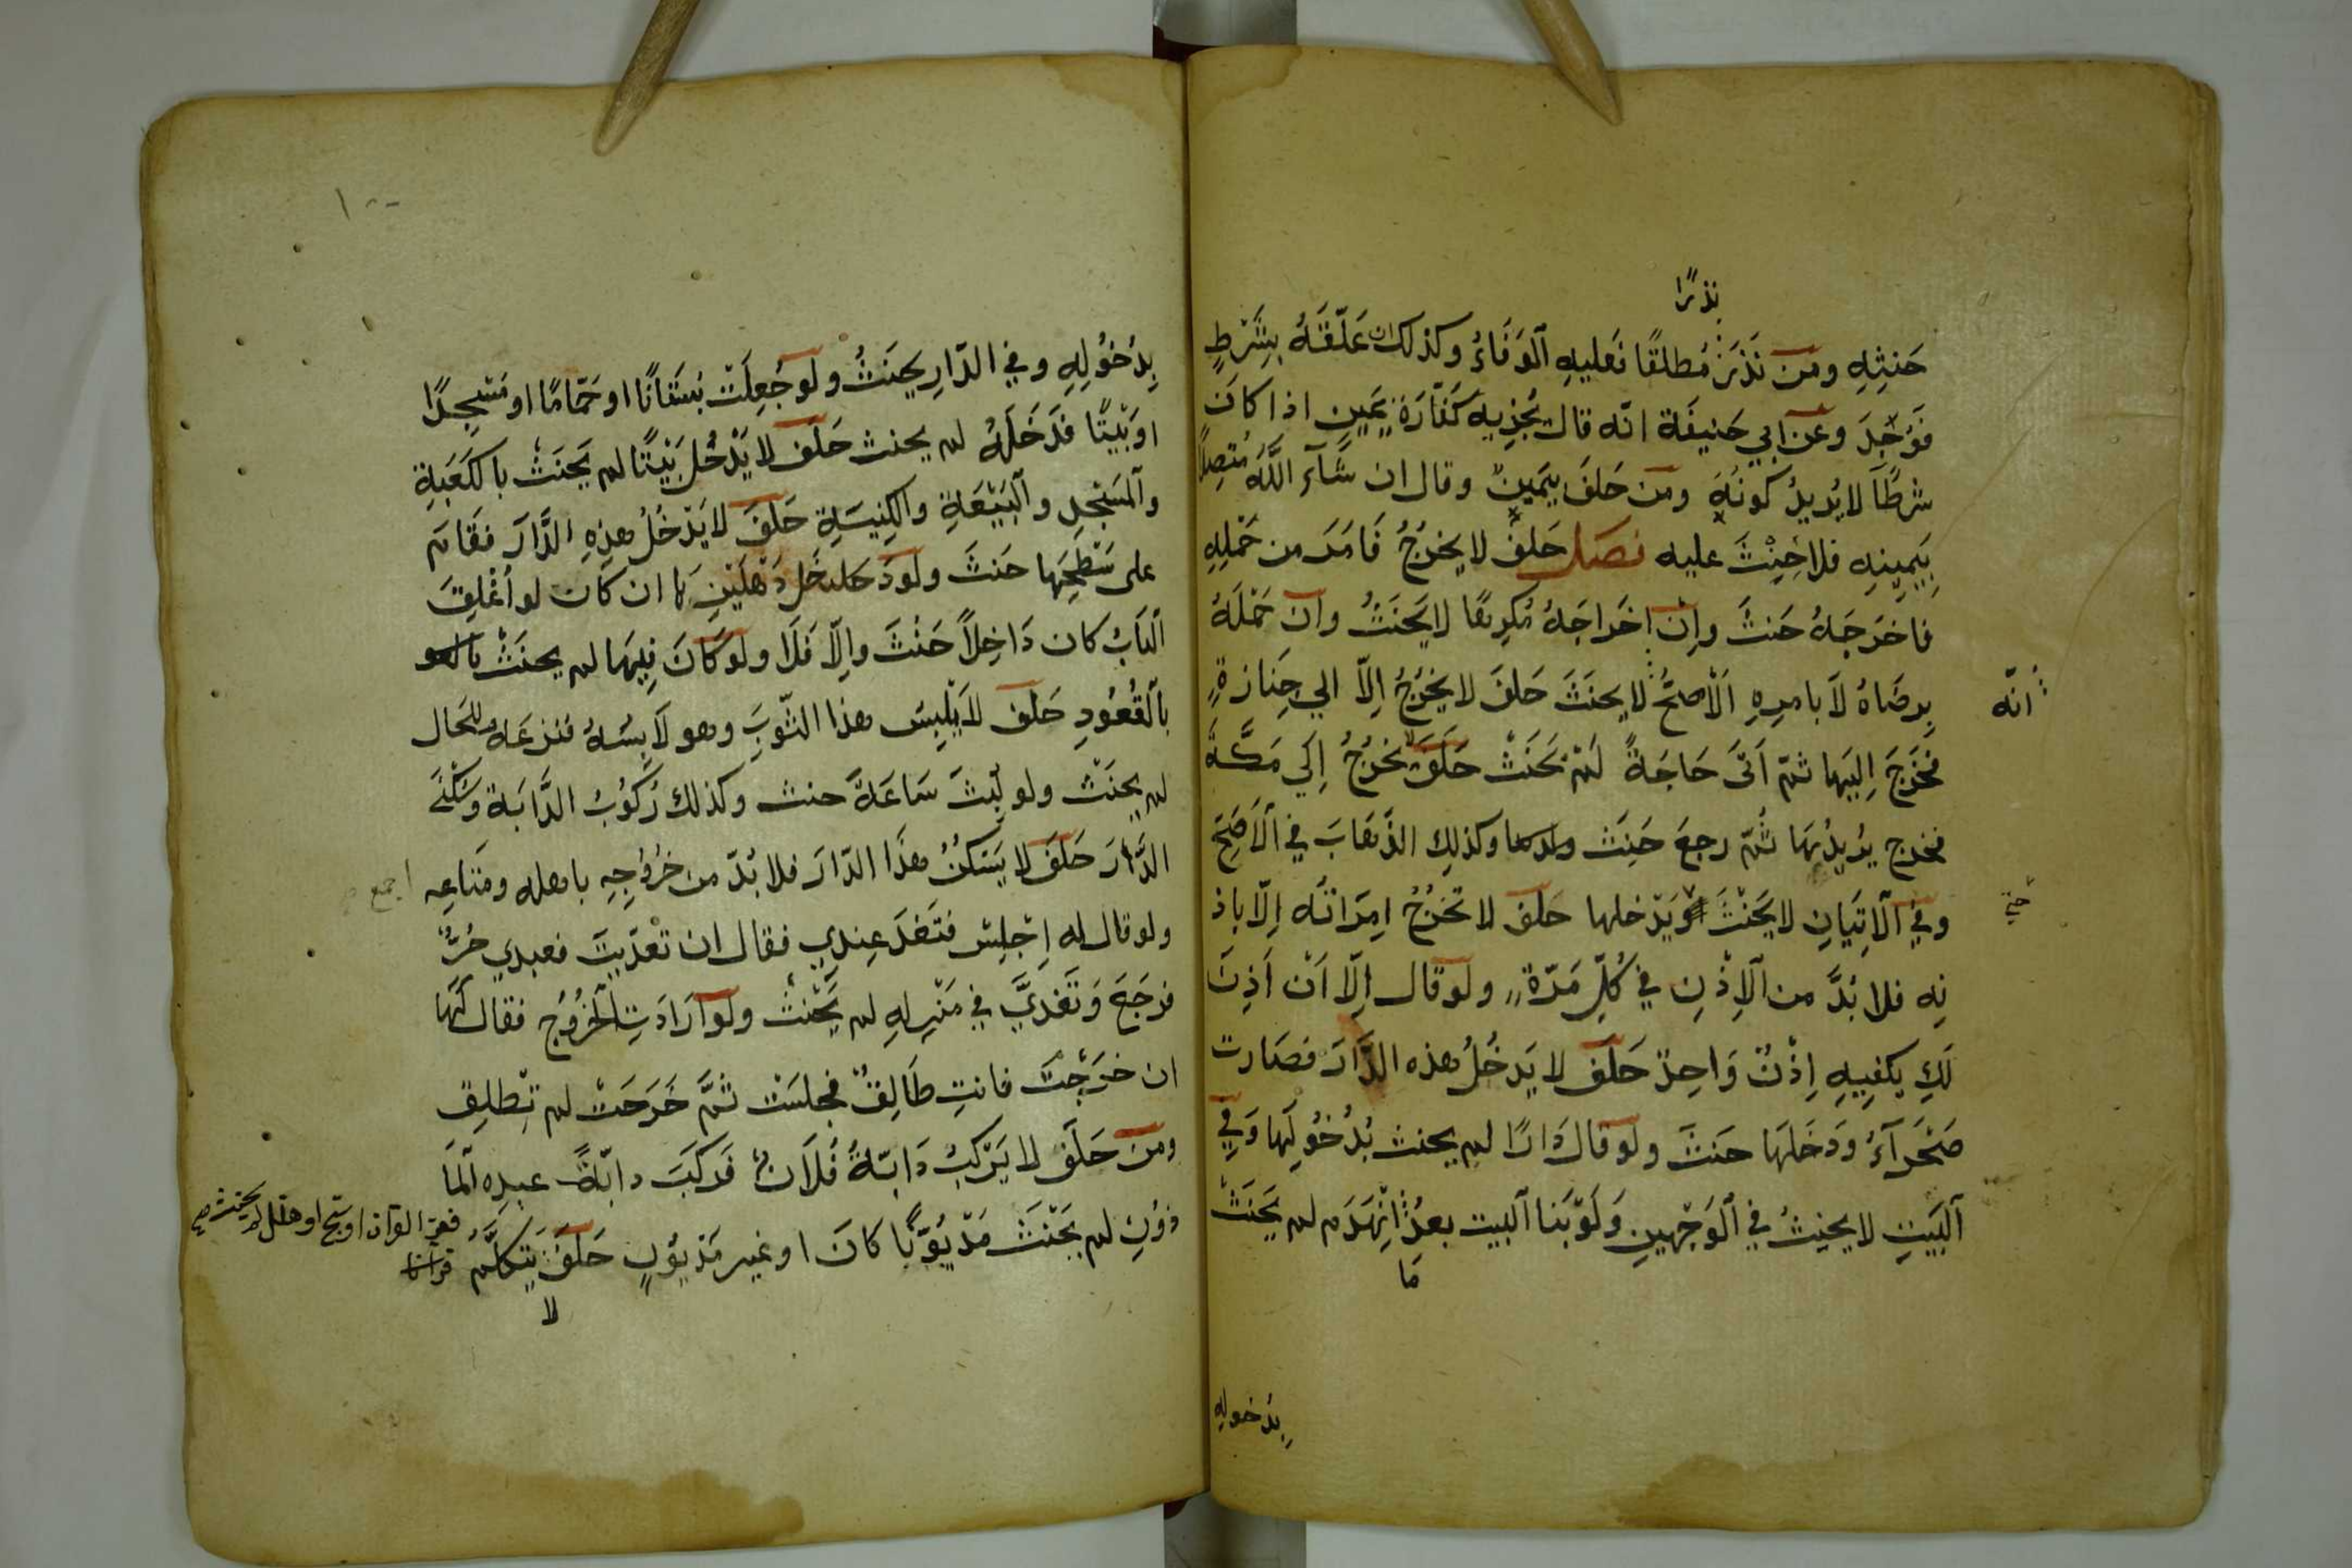 نذرًا
حَنِثِهِ ومَن نَذَرَ مُطلقًا فَعليهِ الوَفَاءُ وكذلك ان عَلَّقَهُ بِشَرْطٍ
فَوُجِدَ وعن ابي حَنيفَة انّه قال تُجزِيه كَفّارَة يَمينٍ اذا كانَ
شرطًا لا يُريدُ كونُهُ ومَن حَلفَ بيَمينٍ وقال ان شَآءَ اللَّهُ مُتصِلاً
بِيَمِينِهِ فلا حِنْثَ عليه فصل حَلفَ لا يخرُجُ فَامَرَ من حَمْلِهِ
فاخرَجَهُ حَنثَ واِن اخرَاجَهُ مُكرِهًا لا يَحنَثُ وان حَمْلَهُ
بِرضَاهُ لاَ بامرِهِ الاصحُّ لا يحنَثَ حَلفَ لا يخرُجُ اِلاّ الي جِنازةٍ
انّه
فخرَجَ اِليَها ثمّ اَتَى حَاجَةً لَمْ يَحَنَثْ حَلَفَ لا يخرُجُ اِلَي مَكَّةَ
فخرج يُريدُهَا ثُمّ رجعَ حَنِثَ وكذلك الذّهَابَ في الاَصَحّ
وفي الاِتيَانِ لا يَحَنْثَ ويَدْخلها حَلَف لا تخرُجُ امِرَاتُه اِلّا باذ
حتي
نِه فلا بُدَّ من الاِذْنِ في كُلِّ مَرّةٍ ولو قال اِلّا اَن اَذِنَ
لَكِ يكفِيهِ اِذْنٌ وَاحِدٌ حَلَفَ لا يَدخُلُ هذه الدّارَ فصَارت
صَحْرَآءُ ودَخَلَهَا حَنثَ ولو قال دَارًا لم يحنث بدُخُولِهَا وَفي
البَيتِ لا يحنِثُ في الوَجْهينِ وَلَوْ بَنا البيت بعدُ انْهَدَم لم يَحَنَثْ
مَا
بدخوله
١٠٠
بِدُخُولِهِ وفي الدّارِ يحنَثُ ولو جُعِلَتْ بُستَانًا او حَمّامًا او مَسْجِدًا
او بَيْتًا فَدَخَلَهُ لم يحنث حَلَف لا يَدْخُلُ بَيْتًا لم يَحنَثْ بالكَعَبَةِ
والمَسْجدِ والبَيْعَةِ والكِنِيسَةِ حَلَفَ لا يَدْخُلُ هذِهِ الدَّارَ فقَامَ
على سَطحِهَا حَنثَ ولو دخل دَهْليزِهَا ان كان لو اُغلِقَ
البَابُ كان دَاخِلاً حَنْثَ واِلاّ فَلَا ولو كَانَ فِيهَا لم يحنَثْ
بالقُعُودِ حَلَف لا يَلبِسَ هذا الثّوبَ وهو لاَبِسُهُ فنزعَهُ للحَال
لم يحنَثْ ولو لَبِثَ سَاعَةً حنث وكذلك رُكُوبُ الدَّابَة وَسُكْنَي
الدَّارَ حَلَفَ لا يَسكنُ هذَا الدّارَ فلا بُدّ من خُرُوجِهِ باهله ومَتَاعِه
اجمع
ولو قال له اِجْلِسْ فتَغدّ عِندِي فقال ان تغدّيتَ فعبدي حُرٌّ
فرَجَعَ وَتَغدَّي في مَنْزِلِهِ لم يَحْنثْ ولو ارَادَتِ الخُرُوجُ فقال لَهَا
ان خرَجْتَ فانتِ طَالِقٌ فجلسَتْ ثمَّ خَرَجَتْ لم تَطلِق
ومَن حَلَفَ لا يَرْكَبُ دَابّةُ فُلاَنٌ فَركَبَ دابّةً عبدِهِ المَا
ذوُنِ لم يَحْنَثَ مَدْيُوًّنًا كانَ او غير مَديوُنٍ حَلَفَ يَتكلَّمُ
لا
فقرا القرآن او سبّح او هلّل لم يحنث صح